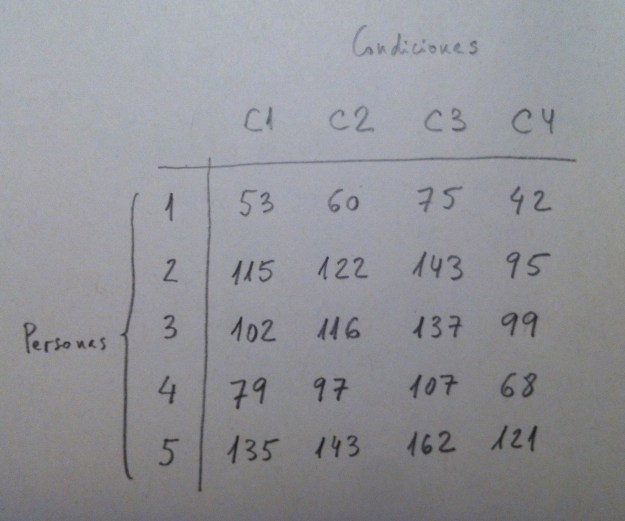 Condiciones
C1 C2 C3 C4
1 53 60 75 42
2 115 122 143 95
Personas 3 102 116 137 99
4 79 97 107 68
5 135 143 162 121